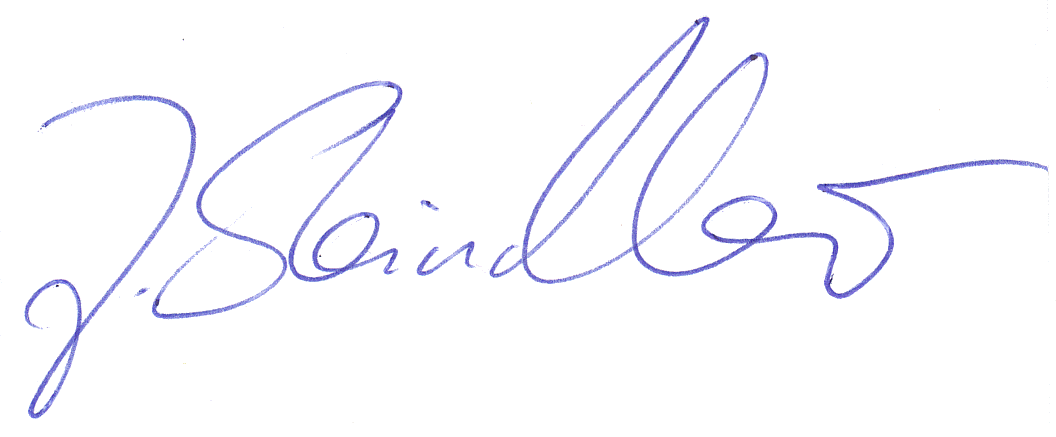 J. Steindler